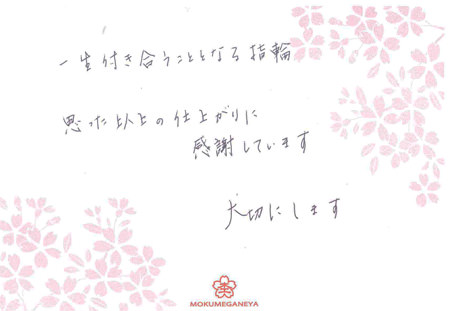 一生付き合うこととなる指輪
思った以上の仕上がりに
感謝しています
大切にします
MOKUMEGANEYA